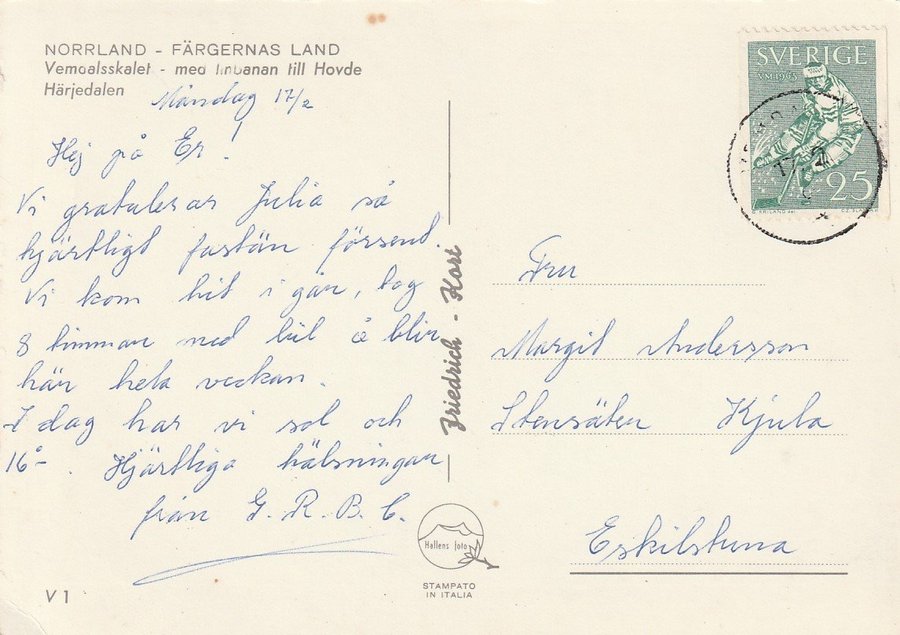 NORRLAND - FÄRGERNAS LAND
Vemdalsskalet - med linbanan till Hovde
Härjedalen
Måndag 17/2
Hej på Er!
Vi gratulerar Julia så
hjärtligt fastän försent.
Vi kom hit i går, tog
8 timmar med bil å blir
här hela veckan.
I dag har vi sol och
16°- . Hjärtliga hälsningar
från G. R. B. C.
V 1
Friedrich - Kort
Hallens foto
STAMPATO
IN ITALIA
SVERIGE
VM 1963
25
17 2
Fru
Margit Andersson
Stensäten Kjula
Eskilstuna